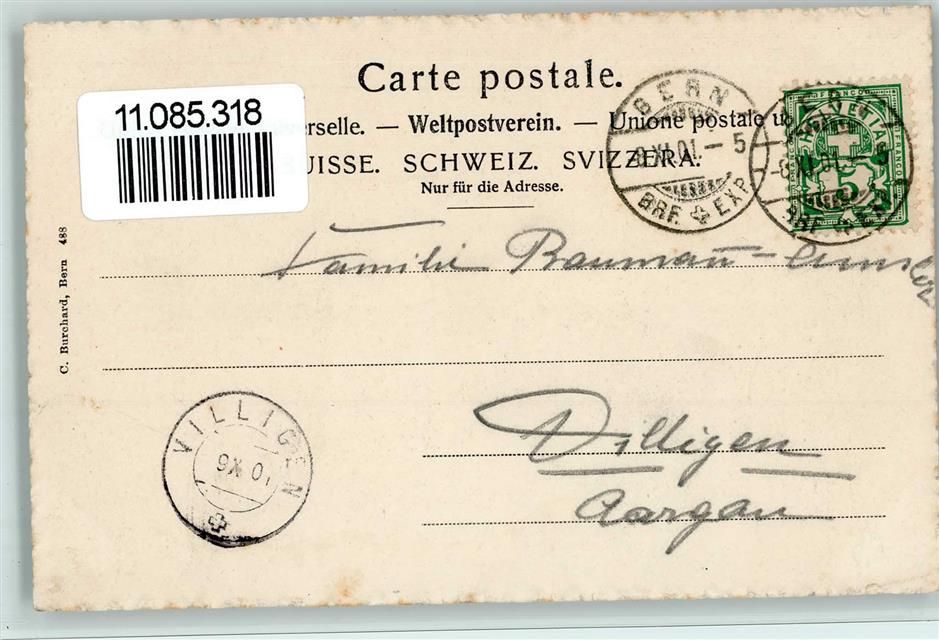 Carte postale.
11.085.318
erselle. — Weltpostverein. — Unione postale u
UISSE. SCHWEIZ. SVIZZERA.
Nur für die Adresse.
BERN
-8.XI.01.-5
BRF. EXP.
FRANCO
HELVETIA
5
C. Burchard, Bern 488
Familie Baumann-Amsler
Villigen
Aargau
VILLIGEN
9 X 01